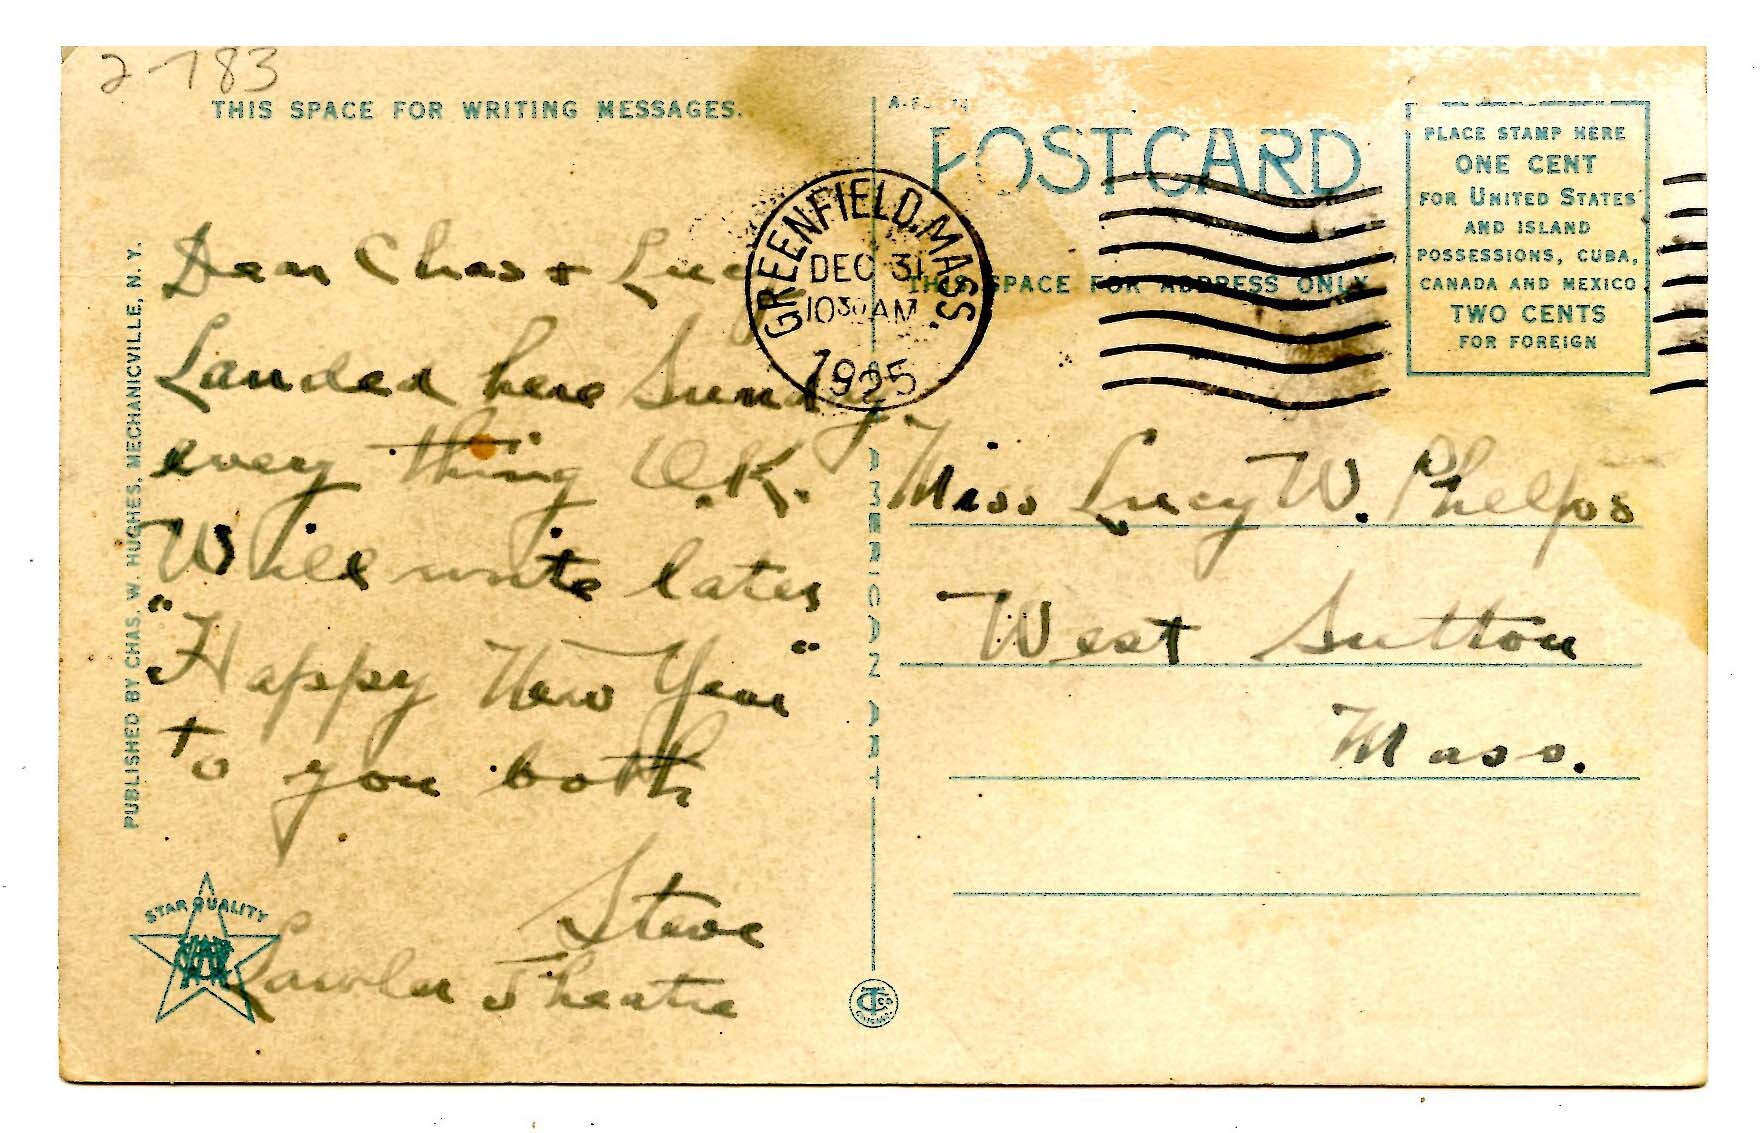 2-783
THIS SPACE FOR WRITING MESSAGES.
PUBLISHED BY CHAS. W. HUGHES, MECHANICVILLE, N. Y.
Dear Chas + Lucy
Landed here Sunday
every thing O.K.
Will write later
"Happy New Year"
to you both
Steve
Lawler Theatre
STAR QUALITY
POSTCARD
GREENFIELD, MASS.
DEC 31
10 30 AM
1925
THIS SPACE FOR ADDRESS ONLY
PLACE STAMP HERE
ONE CENT
FOR UNITED STATES
AND ISLAND
POSSESSIONS, CUBA,
CANADA AND MEXICO
TWO CENTS
FOR FOREIGN
Miss Lucy W. Phelps
West Sutton
Mass.